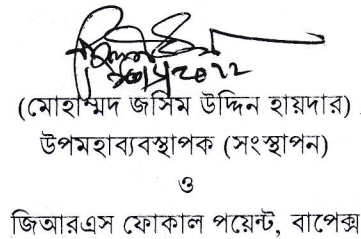 (মোহাম্মদ জসিম উদ্দিন হায়দার)
উপমহাব্যবস্থাপক (সংস্থাপন)
ও
জিআরএস ফোকাল পয়েন্ট, বাপেক্স